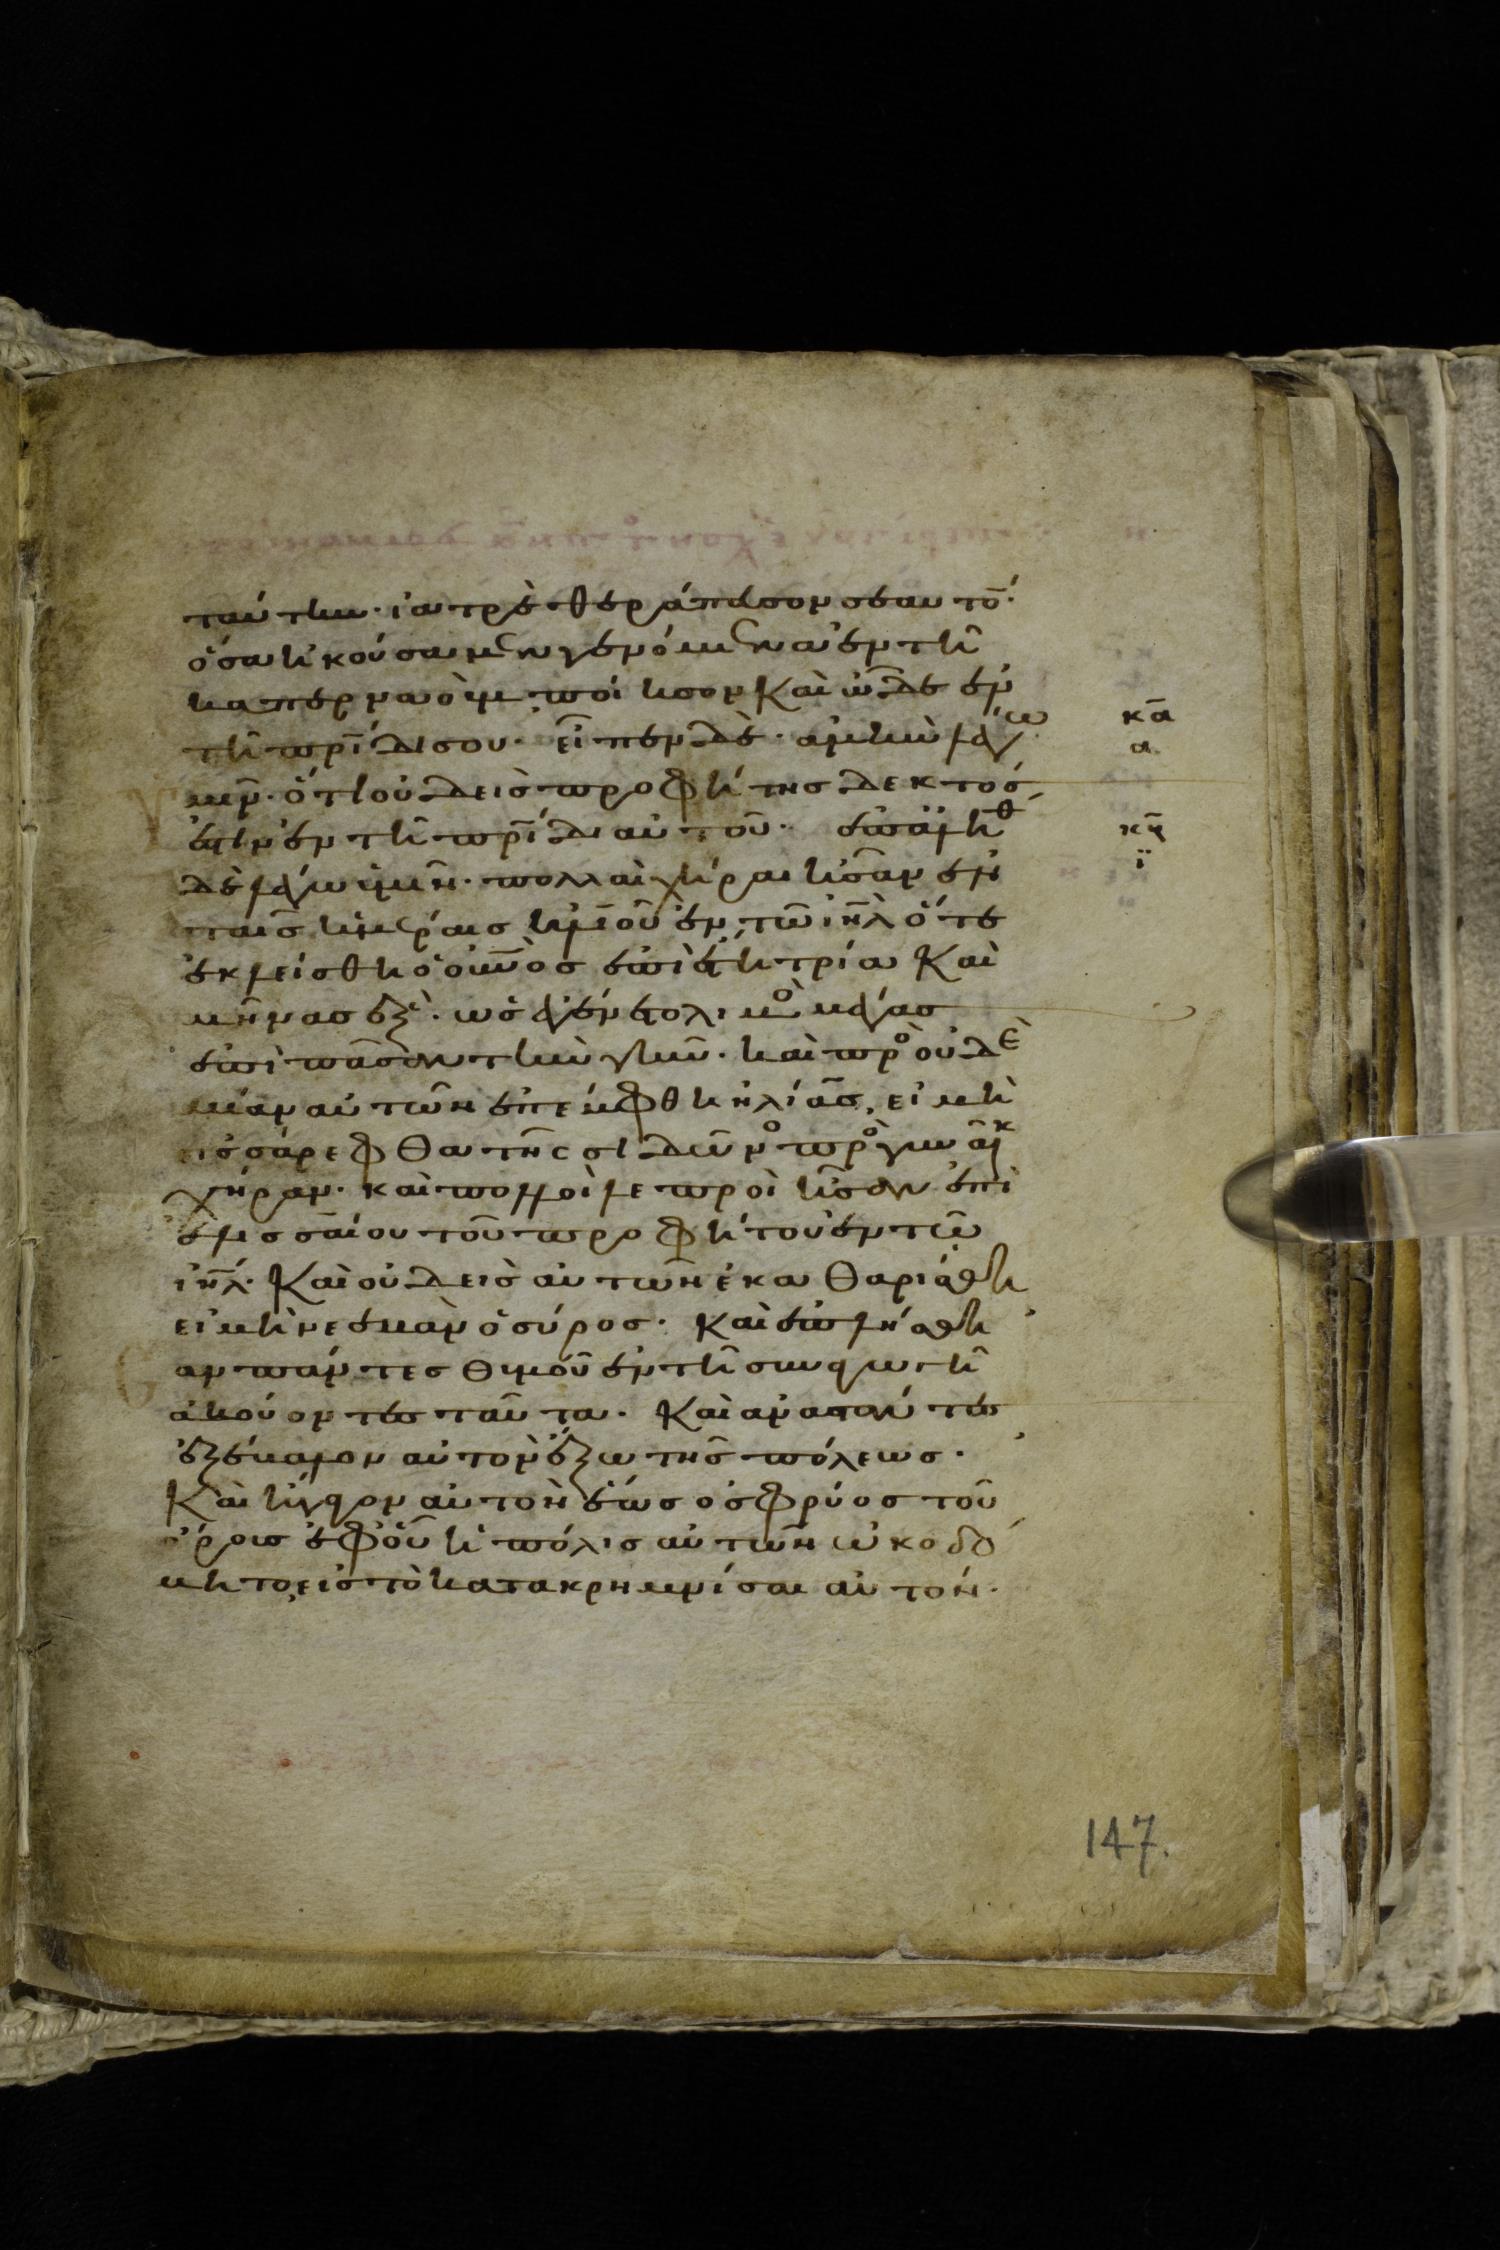 ταύτην· ἰατρὲ θεράπευσον σεαυτό·
ὅσα ἠκούσαμεν γενόμενα ἐν τῆ
καπερναοὺμ ποίησον Καὶ ὧδε ἐν
τῆ πρ̅ίδι σου· εἶπεν δὲ· ἀμὴν λέγω
κ̅α̅
α
υμῖν· ὅτι οὐδεὶς προφήτης δεκτός
ἐστιν ἐν τῆ πρ̅ίδι αὐτοῦ· ἐπ ἀληθ
κ̅γ̅
ϊ
δὲ λέγω ὑμῖν· πολλαὶ χῆραι ἦσαν ἐν
ταῖς ἡμέραις ἡλιοῦ ἐν τῶ ἰη̅λ ὅτε
ἐκλείσθη ὁ οὐν̅ος ἐπὶ ἔτη τρία Καὶ
μῆνας ἓξ· ὡς ἐγένετο λιμὸ μέγας
ἐπὶ πᾶσαν τὴν γῆν· καὶ πρὸ οὐδε
μίαν αὐτῶν ἐπέμφθη ἠλίας, εἰ μὴ
εἰς σάρεφθα τῆς σιδῶνο πρὸ γυναῖκ
χήραν· καὶ πολλοὶ λεπροὶ ἦσαν ἐπὶ
ἐλισσαίου τοῦ προφήτου ἐν τῶ
ἰη̅λ· Καὶ οὐδεὶς αὐτῶν ἐκαθαρίσθη
εἰ μὴ νεεμὰν ὁ σύρος· Καὶ ἐπλήσθη
σαν πάντες θυμοῦ ἐν τῆ συναγωγῆ
ἀκούοντες ταῦτα· Καὶ ἀναστάντες
ἐξέβαλον αὐτὸν ἔξω τῆς πόλεως·
Καὶ ἤγαγον αὐτὸν ἕως ὀφρύος τοῦ
ὄρους ἐφ οὗ ἡ πόλις αὐτῶν ὠκοδό
μητο, εἰς τὸ κατακρημνίσαι αὐτόν·
147.